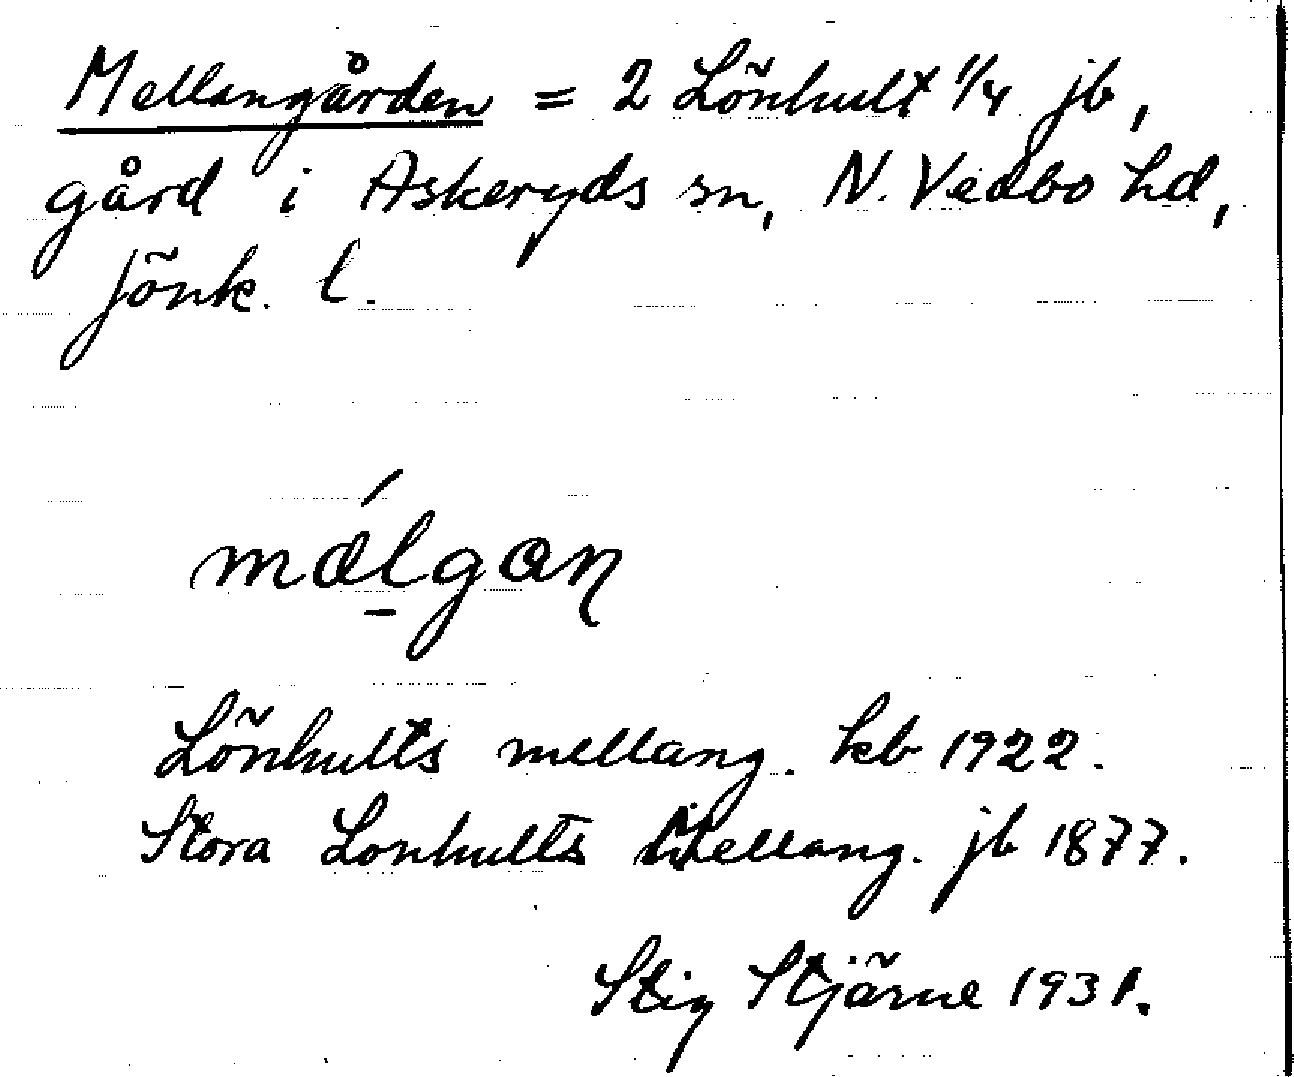 Mellangården = 2 Lönhult 1/4 jb,
gård i Askeryds sn, N. Vedbo hd,
Jönk. l.
mǽlgan
Lönhults mellang. kb 1922.
Stora Lonhults Mellang. jb 1877.
Stig Stjärne 1931.